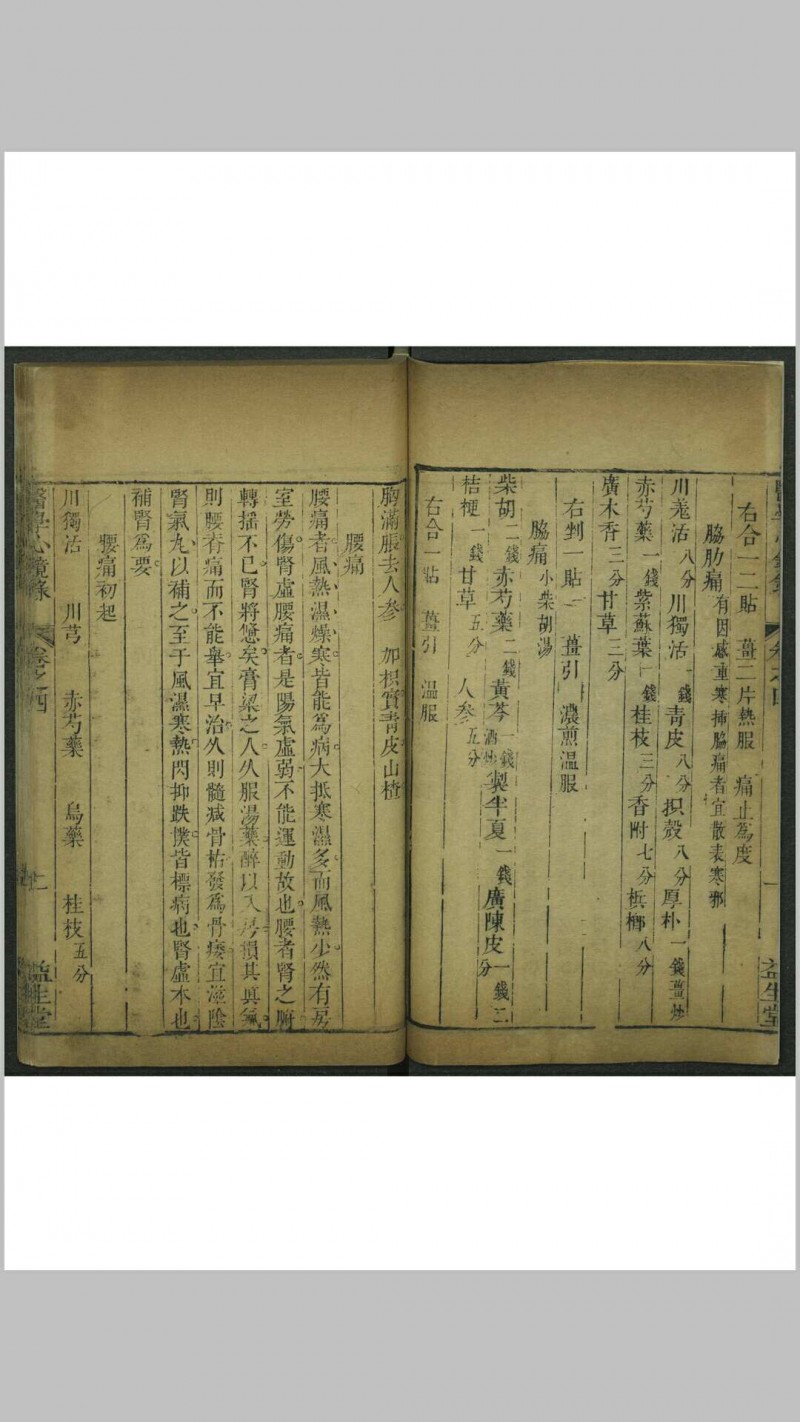 右合一二貼　薑二片熱服　痛止為度
脇肋痛　有因感重寒挿脇痛者宜散表寒邪
川羗活八分　川獨活一錢　青皮八分　枳殼八分　厚朴一錢薑炒
赤芍藥一錢　紫蘇葉一錢　桂枝三分　香附七分　梹榔八分
廣木香三分　甘草三分
右剉一貼　薑引　濃煎温服
脇痛　小柴胡湯
柴胡二錢　赤芍藥二錢　黃芩一錢酒炒　製半夏一錢　廣陳皮一錢二分
桔梗一錢　甘草五分　人參五分
右合一貼　薑引　温服
胸滿脹去人參　加枳實青皮山楂
腰痛
腰痛者風熱濕燥寒皆能爲病大抵寒濕多而風熱少然有房
室勞傷腎虛腰痛者是陽氣虛弱不能運動故也腰者腎之腑
轉揺不已腎將憊矣膏粱之人久服湯藥醉以入房損其真氣
則腰脊痛而不能舉宜早治久則髓减骨枯發爲骨痿宜滋陰
腎氣丸以補之至于風濕寒熱閃抑跌撲皆標病也腎虛本也
補腎爲要
腰痛初起
川獨活　川芎　赤芍藥　烏藥　桂枝五分
醫學心鏡錄　卷之四　益生堂